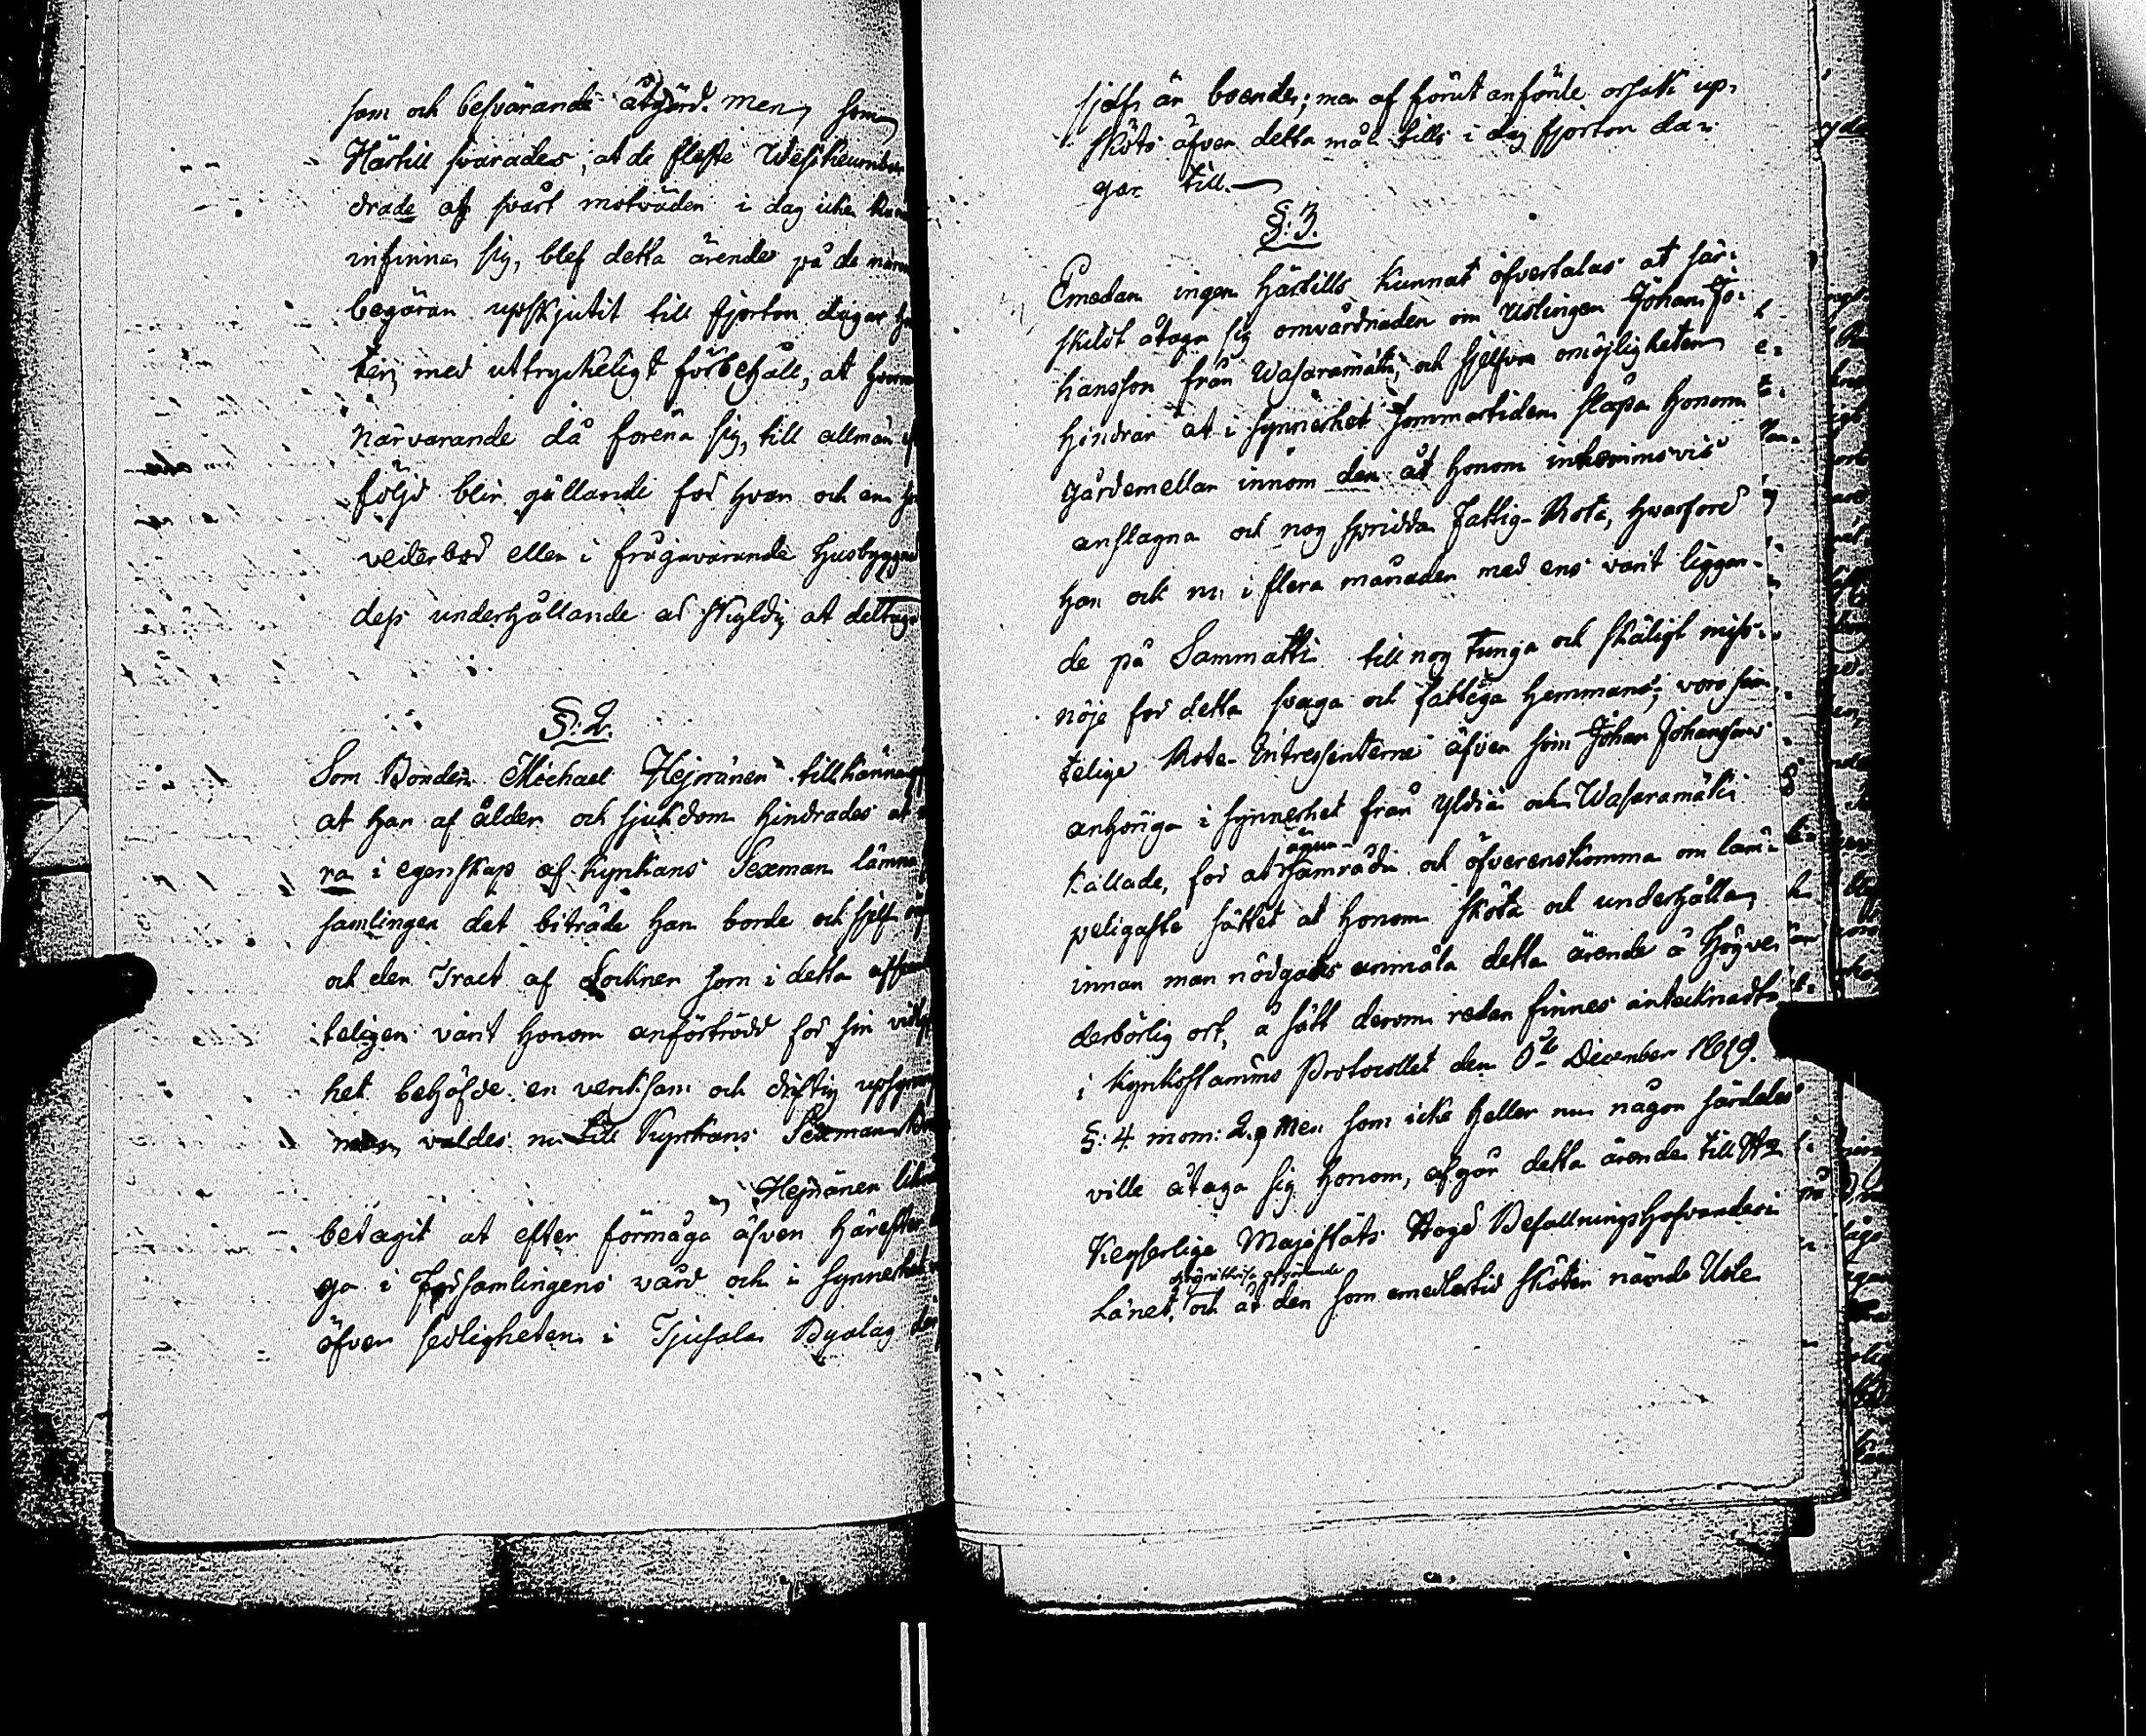 som och besvärande åtgärd. men som
Härtill svarades, at de fleste
drade af svårt motväder i dag icke
infinna sig, blef detta ärende på de
begäran upskjutit till fjorton dagar
ter, med uttryckeligt förbehåll, at
närvarande då förena sig, till allmän
följd blir gällande för hvar och en
vederbör eller i frågavarande
dess underhållande är skyldig at deltaga
§: 2.
Som Bonden Michael Hejnänen tillkänna
at han af ålder och sjukdom hindrades at
ra i egenskap af Kyrkans Sexman lämna
samlingen det biträde han borde och sjelf
och den Tract af Socknen som i detta
teligen varit honom anförtrodd för sin
het behöfde en verksam och driftig
man, valdes nu till Kyrkans Sexman
Hejnänen
betagit at efter förmåga äfven härefter
ga i Församlingens vård och i synnerhet
öfver sedligheten i Tjusala Byalag
sjelf är boende; men af förut anförde orsak up-
sköts äfven detta mål tills i dag fjorton da-
gar till.
§: 3.
Emedan ingen härtills kunnat öfvertalas at sär-
skildt åtaga sig omvårdnaden om Uslingen Johan Jo-
hansson från Wasaramäki, och sjelfva omöjligheten
hindrar at i synnerhet sommartiden släpa honom
gårdemellan innom den åt honom
anslagna och nog spridda Fattig-Rota, hvarföre
han ock nu i flera månader med ens varit liggan-
de på Sammatti till nog tunga och skäligt miss-
nöje för detta svaga och fattiga Hemman; voro sam-
telige Rote-Intressenterne äfven som Johan Johanssons
anhöriga i synnerhet från Yldiä och Wasaramäki
kallade, för at samråda och öfverenskomma om läm-
peligaste sättet at honom sköta och underhålla,
innan man nödgades anmäla detta ärende å högve-
derbörlig ort, å sätt derom redan finnes antecknadt
i Kyrkostämms Protocollet den December 1819.
§: 4 mom: 2. Men som icke heller nu någon särdeles
ville åtaga sig honom, afgår detta ärende till
Keyserlige Majestäts Höga Befallningshafvande i
Länet, och åt den som emedlertid sköter nämde Usle